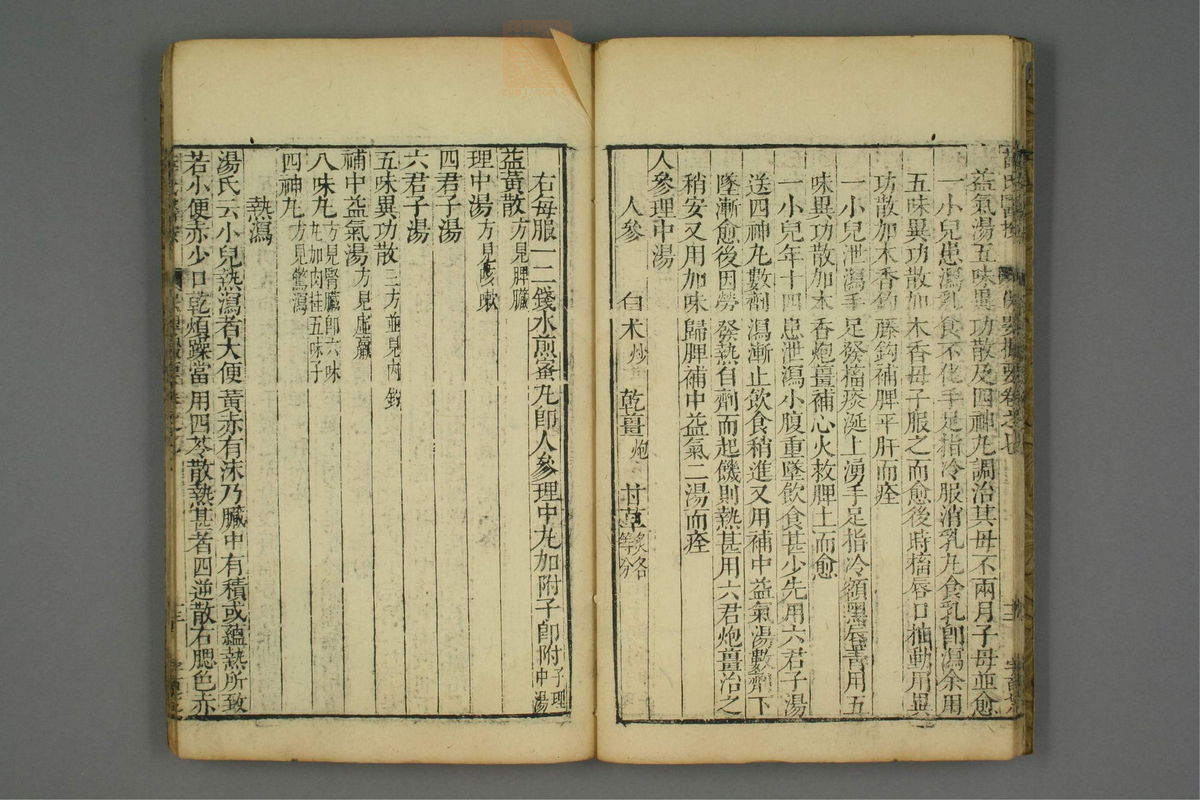 益氣湯五味異功散及四神丸調治其母不兩月子母並愈
一小兒患瀉乳食不化手足指冷服消乳丸食乳卽瀉余用
五味異功散加木香母子服之而愈後時搐唇口抽動用異
功散加木香鈎藤鈎補脾平肝而痊
一小兒泄瀉手足發搐痰涎上湧手足指冷額黑唇青用五
味異功散加木香炮薑補心火救脾土而愈
一小兒年十四患泄瀉小腹重墜飲食甚少先用六君子湯
送四神丸數劑瀉漸止飲食稍進又用補中益氣湯數劑下
墜漸愈後因勞發熱自劑而起饑則熱甚用六君炮薑治之
稍安又用加味歸脾補中益氣二湯而痊
人參理中湯
人參 白朮炒 乾薑炮 甘草炙各等分
右每服一二錢水煎蜜丸卽人參理中丸加附子卽附子理中湯
益黃散方見脾臟
理中湯方見咳嗽
四君子湯
六君子湯
五味異功散三方並見內釣
補中益氣湯方見虛羸
八味丸方見腎臟卽六味丸加肉桂五味子
四神丸方見驚瀉
熱瀉
湯氏云小兒熱瀉者大便黃赤有沫乃臟中有積或蘊熱所致
若小便赤少口乾煩躁當用四苓散熱甚者四逆散右腮色赤